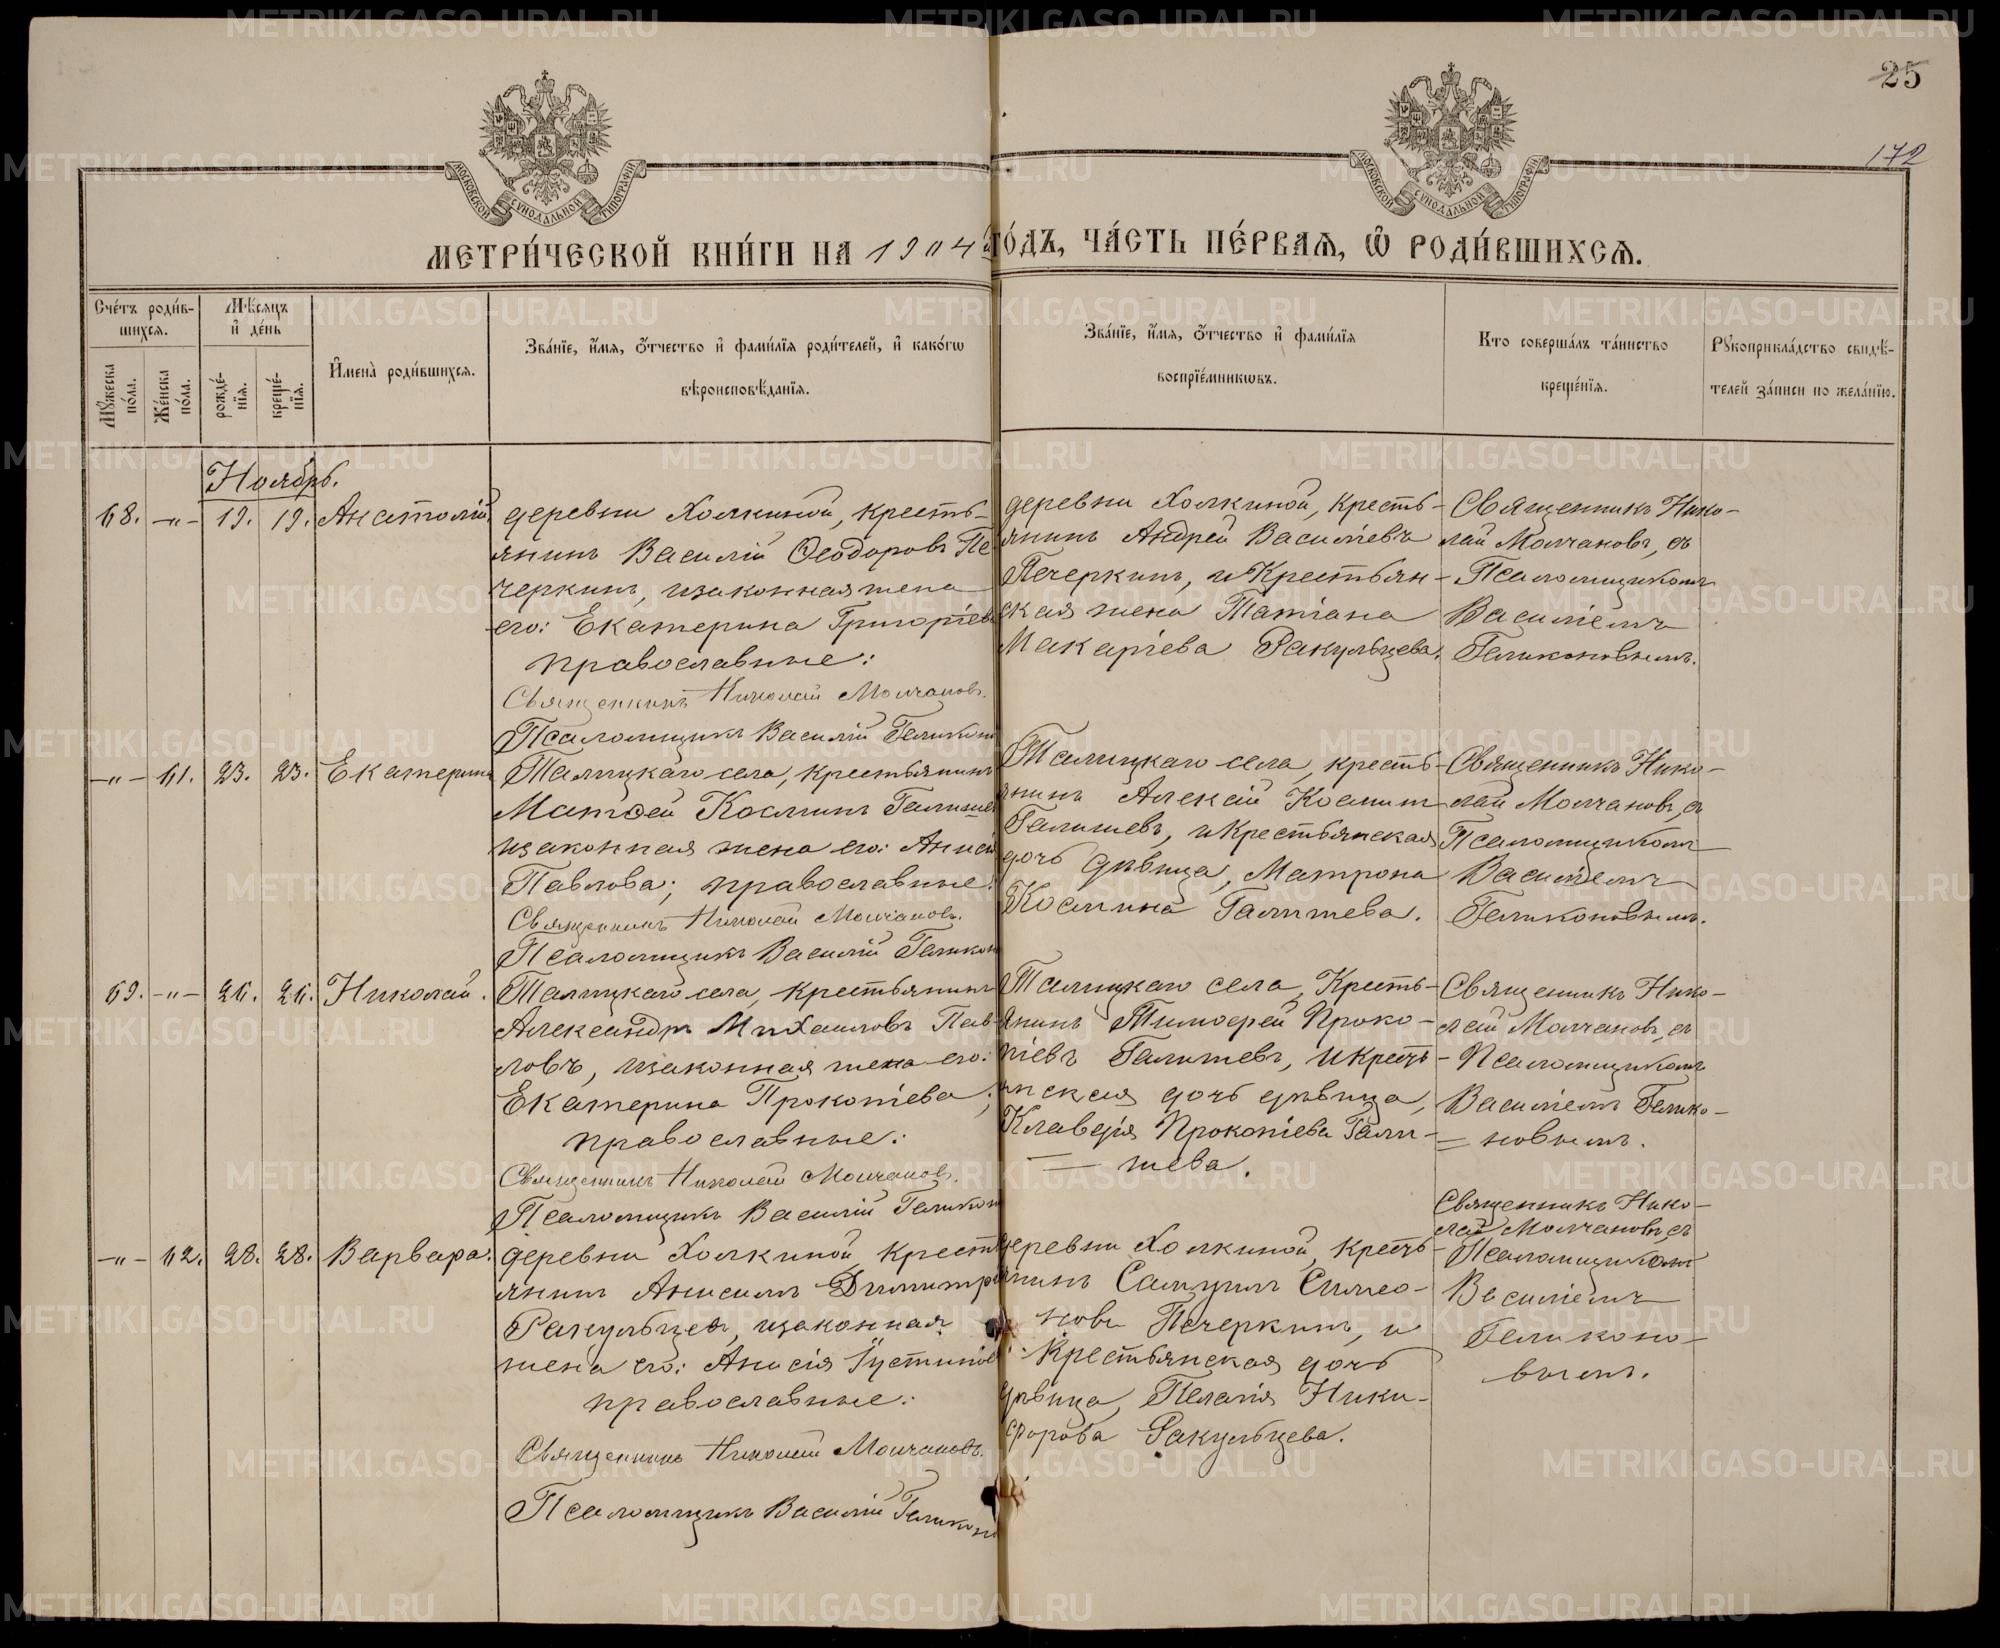 25
172
МОСКОВСКОЙ СѴНОДАЛЬНОЙ ТИПОГРАФІИ
МОСКОВСКОЙ СѴНОДАЛЬНОЙ ТИПОГРАФІИ
МЕТРИ́ЧЕСКОЙ КНИ́ГИ НА 1904 й ГО́ДЪ, ЧА́СТЬ ПЕ́РВАѦ, Ѡ҆ РОДИ́ВШИХСѦ.
Сче́тъ роди́в-
шихсѧ.
Мꙋ́жеска по́ла.
Же́нска по́ла.
Мѣ́сѧцъ
и҆ де́нь
рожде́-
нїѧ.
креще́-
нїѧ.
И҆мена̀ роди́вшихсѧ.
Зва́нїе, и҆́мѧ, ѻ҆́тчество и҆ фами́лїѧ роди́телей, и҆ како́гѡ
вѣроисповѣ́данїѧ.
Зва́нїе, и҆́мѧ, ѻ҆́тчество и҆ фами́лїѧ
воспрїе́мникѡвъ.
Кто соверша́лъ та́инство
креще́нїѧ.
Рꙋкоприкла́дство свидѣ́-
телей за́писи по жела́нїю.
Ноябрь.
68. —„— 19. 19. Анатолій
деревни Холкиной, кресть-
янинъ Василій Ѳеодоровъ Пе
черкинъ, и законная жена
его: Екатерина Григоріев
православные:
Священникъ Николай Молчановъ.
Псаломщикъ Василій Геликон
деревни Холкиной, кресть-
янинъ Андрей Васильевъ
Печеркинъ, и крестьян-
ская жена Татіана
Макаріева Ракульцева.
Священникъ Нико-
лай Молчановъ, съ
Псаломщикомъ
Василіемъ
Геликоновымъ.
—„— 61. 23. 23. Екатерина
Талицкаго села, крестьянинъ
Матѳей Косминъ Галише
и законная жена его: Анисі
Павлова; православные:
Священникъ Николай Молчановъ.
Псаломщикъ Василій Геликон
Талицкаго села, кресть-
янинъ Алексій Космин
Галишевъ, и крестьянская
дочь дѣвица, Матрона
Космина Галишева.
Священникъ Нико-
лай Молчановъ, съ
Псаломщикомъ
Василіемъ
Геликоновымъ.
69. —„— 26. 26. Николай.
Талицкаго села, крестьянинъ
Александръ Михаиловъ Пав-
ловъ, и законная жена его:
Екатерина Прокопіева;
православные:
Священникъ Николай Молчановъ.
Псаломщикъ Василій Геликон
Талицкаго села, Кресть-
янинъ Тимофей Проко-
піевъ Галишевъ, и кресть-
янская дочь дѣвица,
Клавдія Прокопіева Гали-
шева.
Священникъ Нико-
лай Молчановъ, съ
Псаломщикомъ
Василіемъ Гелико-
новымъ.
—„— 62. 28. 28. Варвара.
деревни Холкиной кресть
янинъ Анисимъ Димитрі
Ракульцевъ, и законная
жена его: Анисія Іустинов
православные:
Священникъ Николай Молчановъ.
Псаломщикъ Василій Геликон
деревни Холкиной, кресть-
янинъ Самуилъ Симео-
новъ Печеркинъ, и
Крестьянская дочь
дѣвица, Пелагія Ники-
форова Ракульцева.
Священникъ Нико-
лай Молчановъ, съ
Псаломщикомъ
Василіемъ
Геликоно-
вымъ.